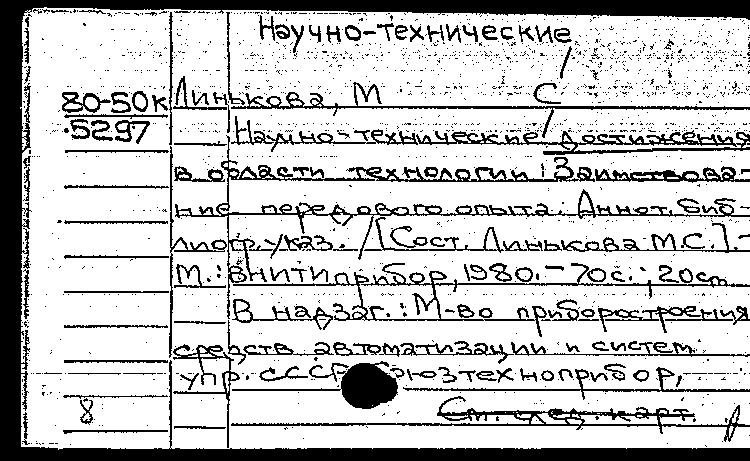 Научно-технические
80-50к Линькова, М С
5297 Научно-технические достижения
в области технологии: Заимствова-
ние передового опыта: Аннот. биб-
лиогр. указ. / [Сост. Линькова М.С.].-
М.: ВНИТИприбор, 1980. - 70с.; 20см.
В надзаг.: М-во приборостроения
средств автоматизации и систем
упр. СССР, Союзтехноприбор,
8 См. след. карт.